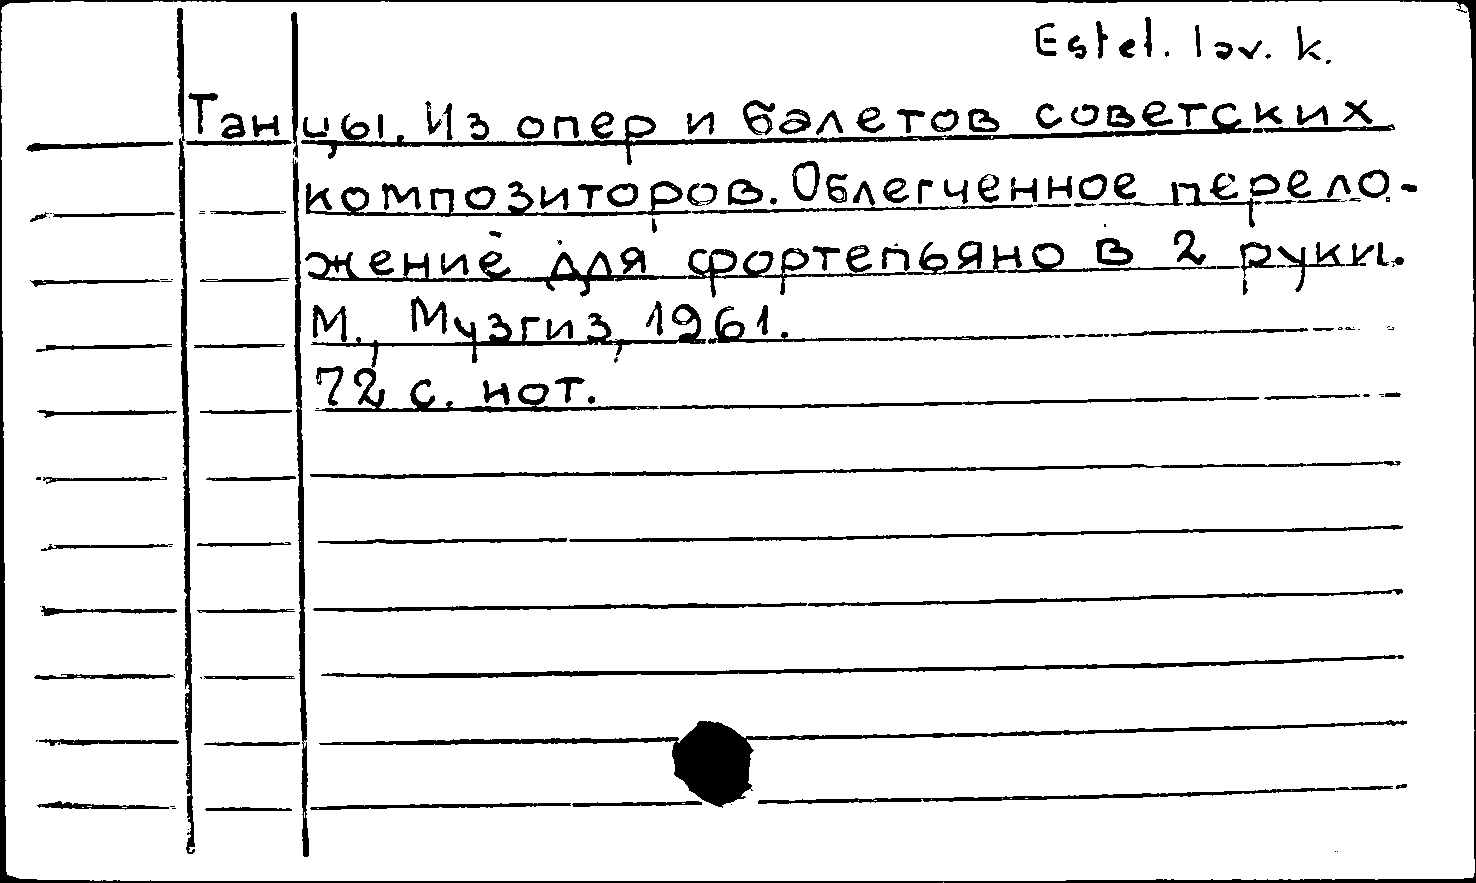 Estet. lav. k.
Танцы. Из опер и балетов советских
композиторов. Облегченное перело-
жение для фортепьяно в 2 руки.
М., Музгиз, 1961.
72 с. нот.